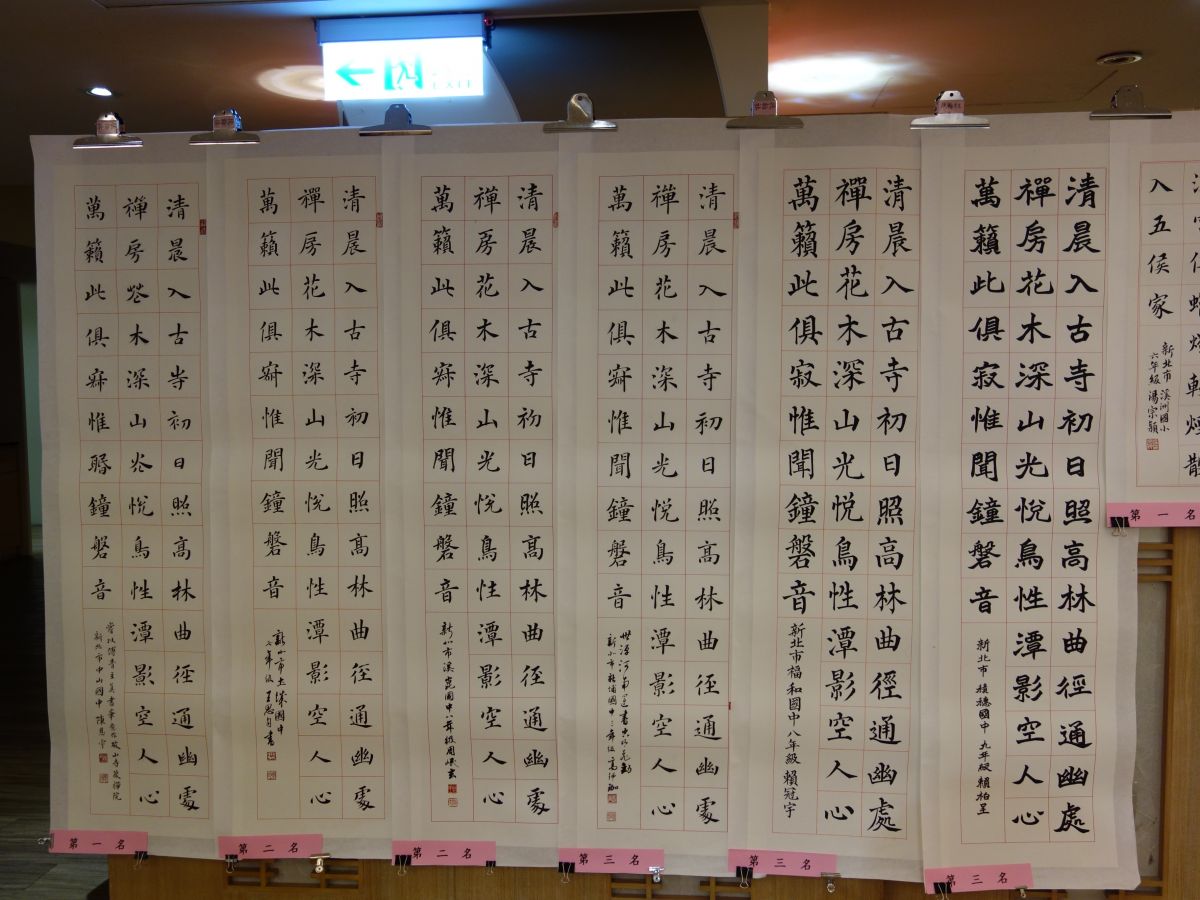 EXIT
清晨入古寺初日照高林曲徑通幽處
禪房花木深山光悅鳥性潭影空人心
萬籟此俱寂惟聞鐘磐音
新北市中山國中
第一名
清晨入古寺初日照高林曲徑通幽處
禪房花木深山光悅鳥性潭影空人心
萬籟此俱寂惟聞鐘磐音
第二名
清晨入古寺初日照高林曲徑通幽處
禪房花木深山光悅鳥性潭影空人心
萬籟此俱寂惟聞鐘磐音
新北市溪崑國中八年級
第二名
清晨入古寺初日照高林曲徑通幽處
禪房花木深山光悅鳥性潭影空人心
萬籟此俱寂惟聞鐘磐音
第三名
清晨入古寺初日照高林曲徑通幽處
禪房花木深山光悅鳥性潭影空人心
萬籟此俱寂惟聞鐘磐音
新北市福和國中八年級 賴冠宇
第三名
清晨入古寺初日照高林曲徑通幽處
禪房花木深山光悅鳥性潭影空人心
萬籟此俱寂惟聞鐘磐音
新北市 積穗國中 九年級 賴柏呈
第三名
入五侯家
新北市 溪洲國小
六年級 湯宗穎
第一名